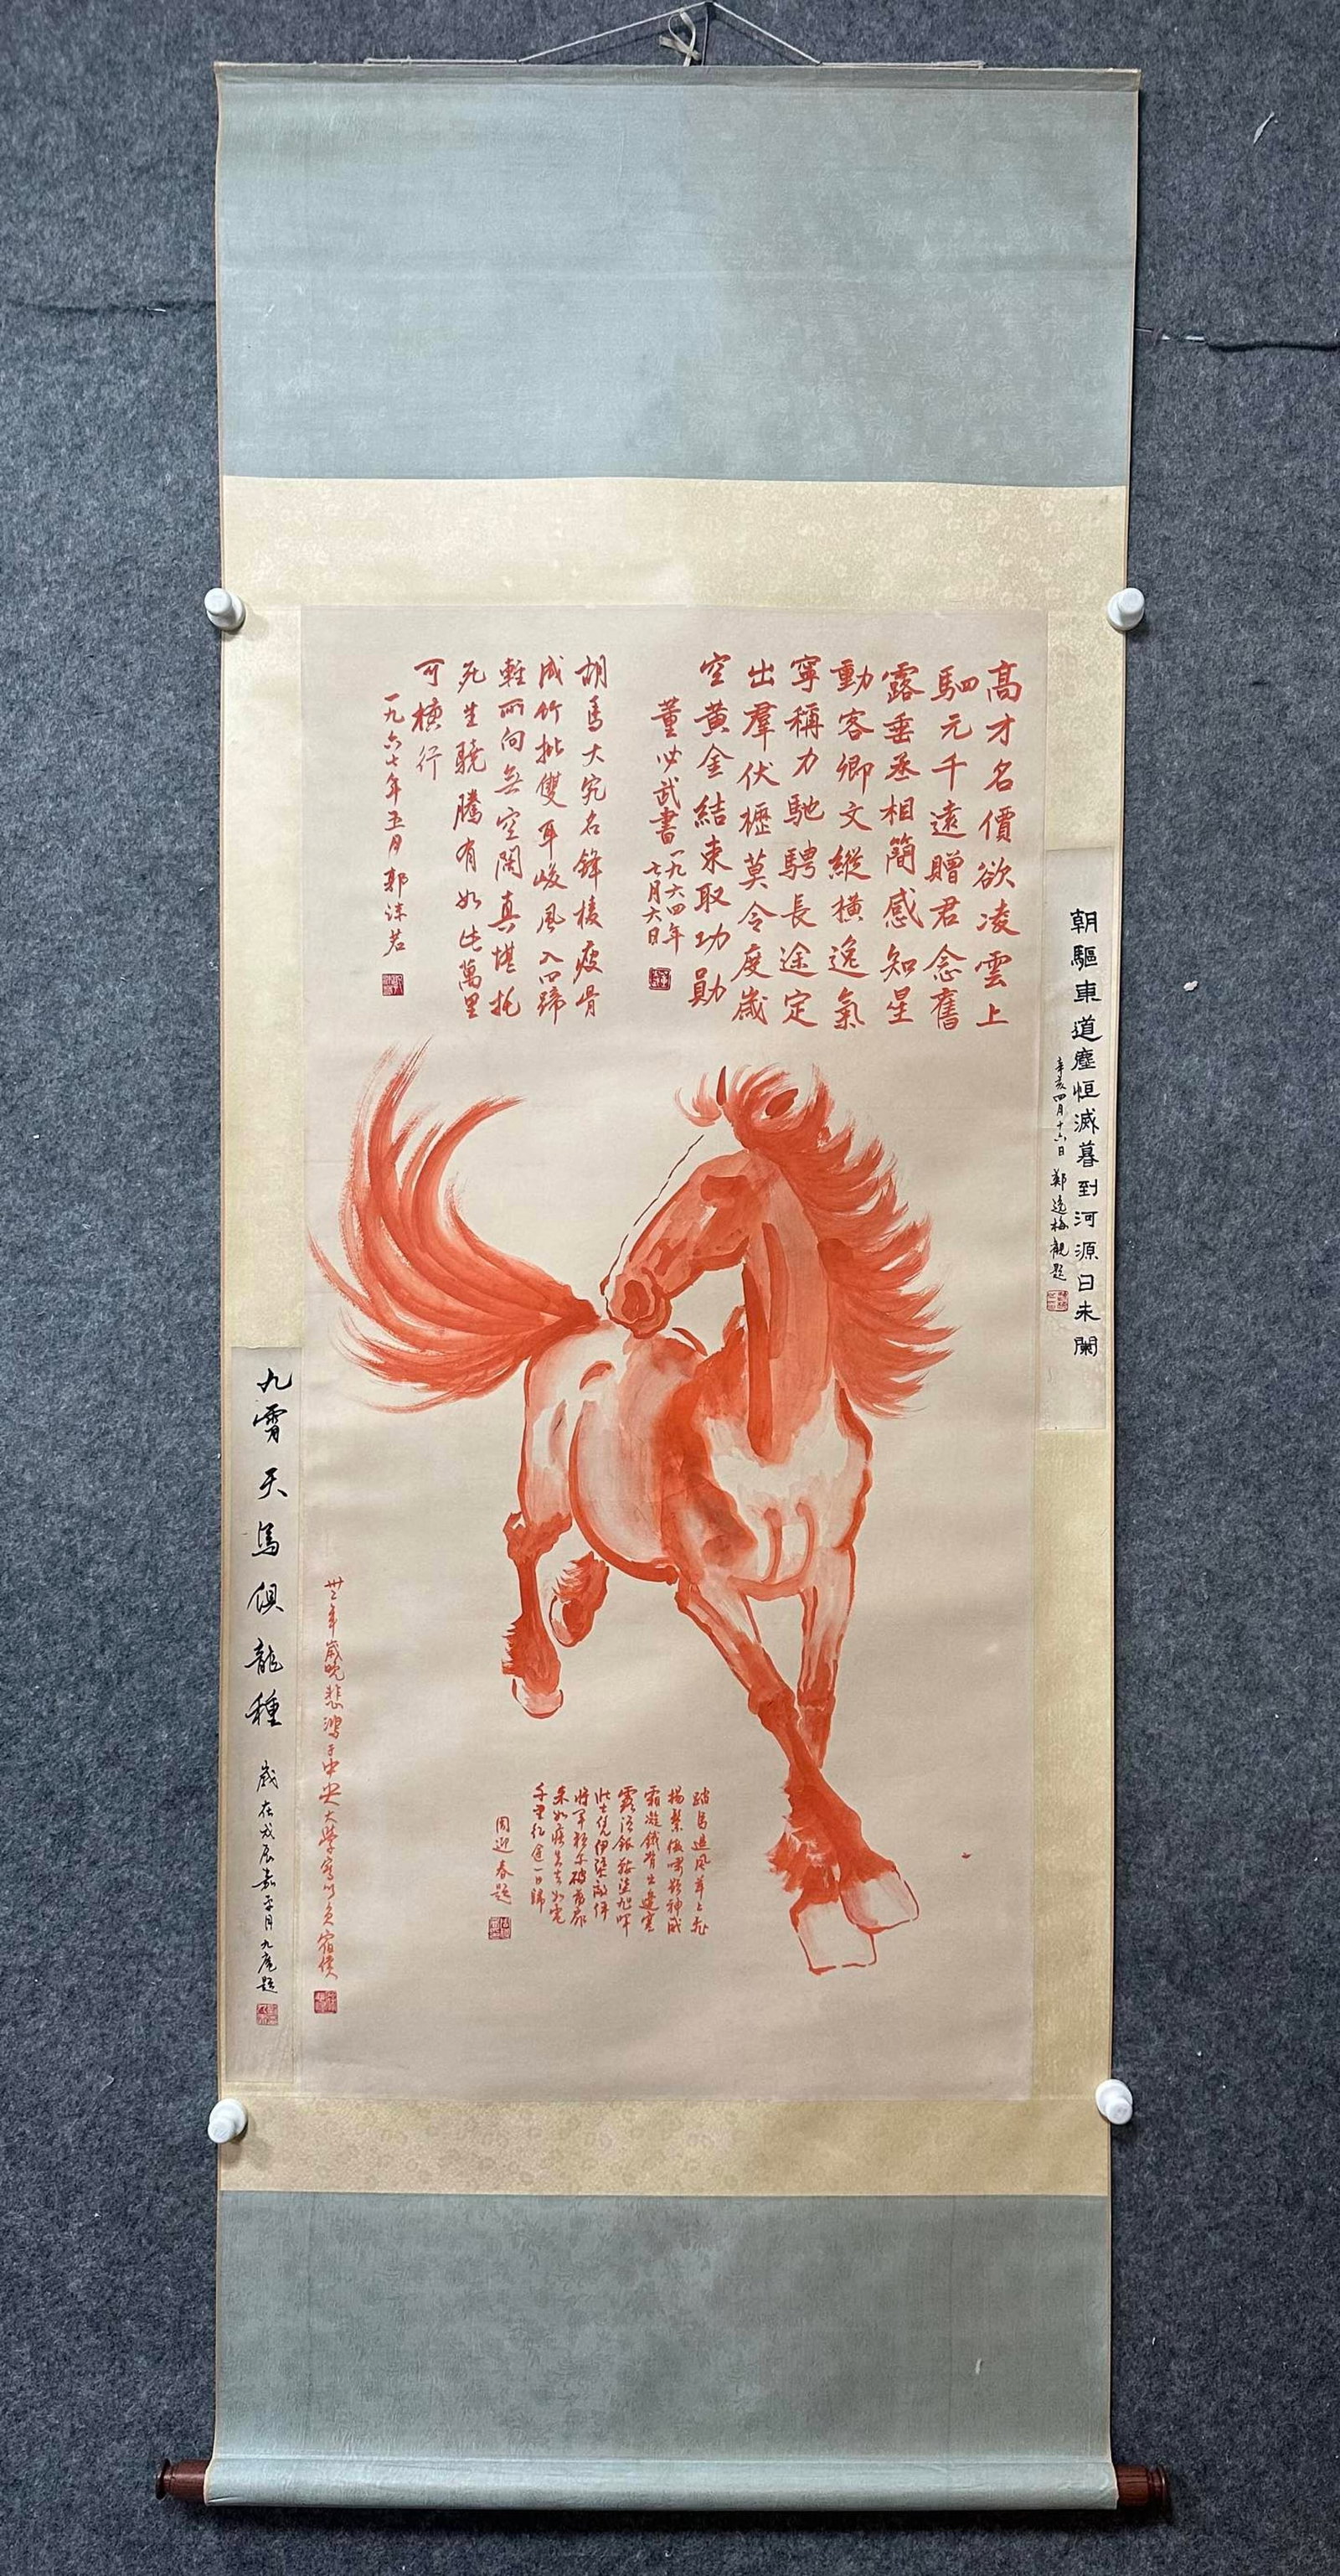 朝驅東道塵恒滅暮到河源日未闌
辛亥四月十六日 鄭逸梅觀題
高才名價欲凌雲上
駟元千遠贈君念舊
露垂丞相簡感知星
動客卿文縱橫逸氣
寧稱力馳騁長途定
出羣伏櫪莫令度歲
空黃金結束取功勛
董必武書
一九六四年
七月六日
胡馬大宛名鋒棱瘦骨
成竹批雙耳峻風入四蹄
輕所向無空闊真堪托
死生驍騰有如此萬里
可橫行
一九六七年五月 郭沫若
踏馬追風草上飛
揚鬃後嘯顯神威
霜凝鐵骨出邊塞
露浥銀鞍逐旭暉
將軍
千里征途一日歸
周迎春題
卅三年歲晚悲鴻于中央大學寫
九霄天馬俱龍種
歲在戊辰嘉平月九庵題